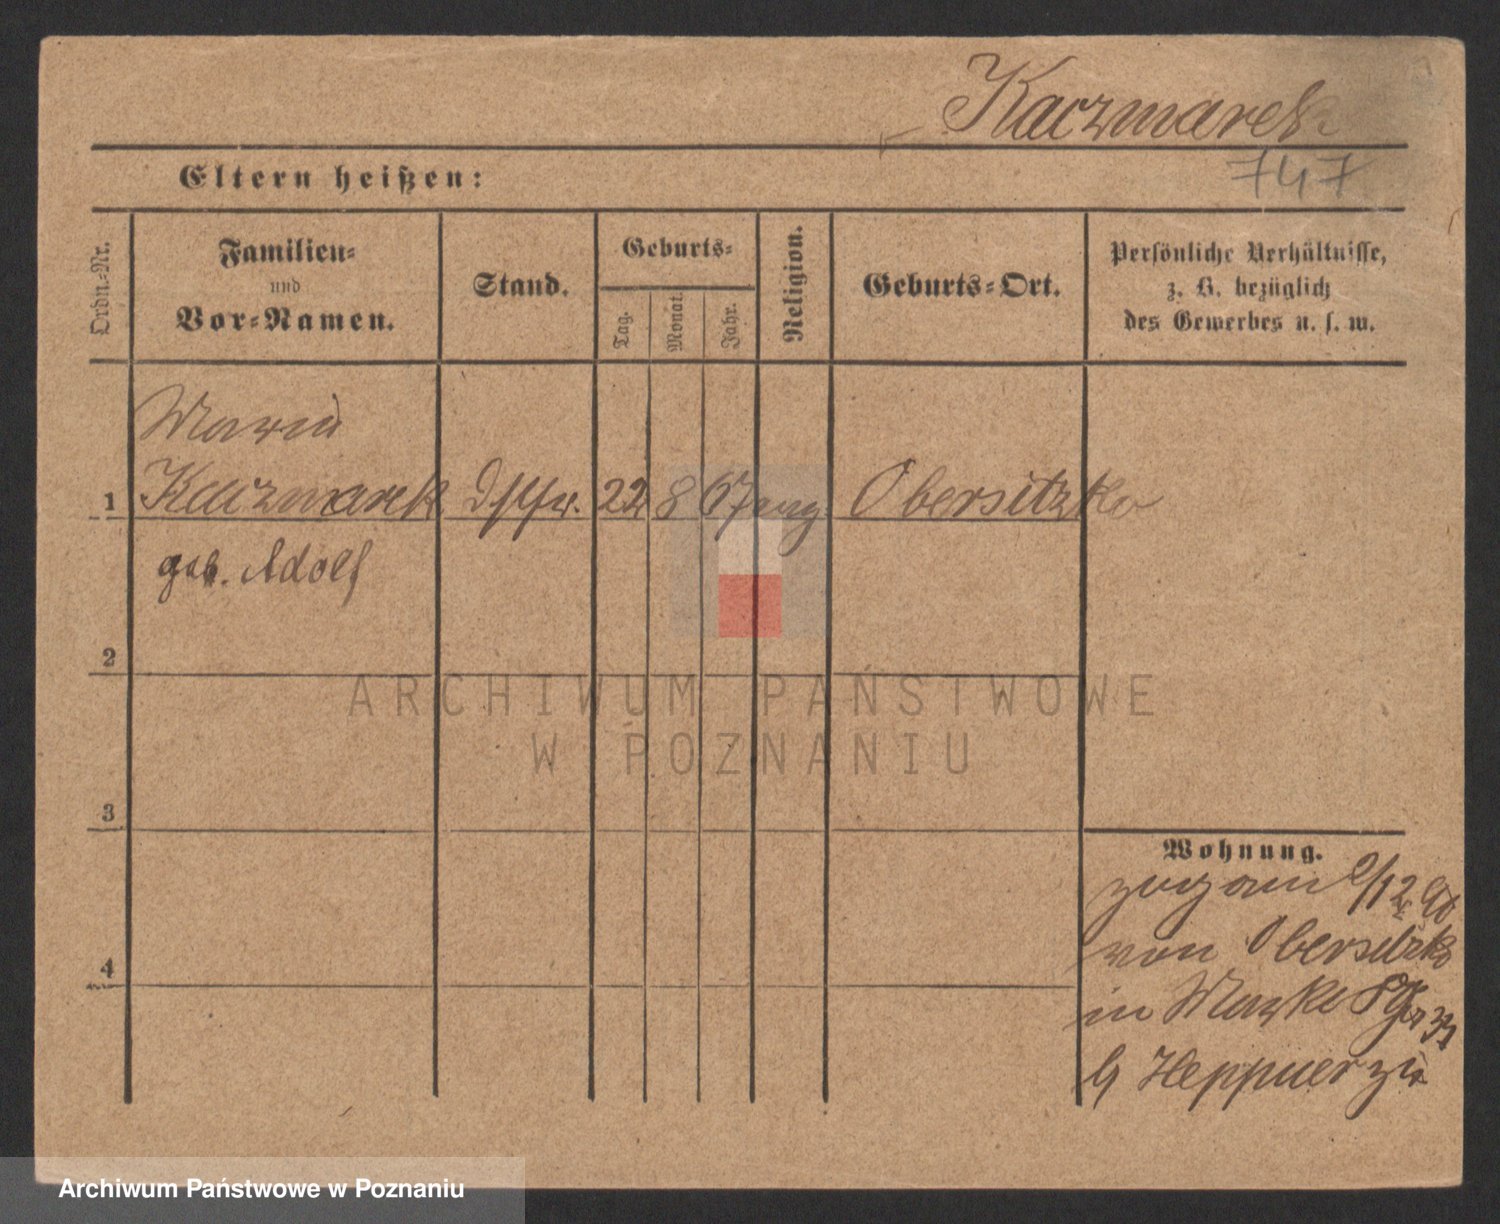 Kaczmarek
747
Eltern heißen:
Ordn.-Nr.
Familien-
und
Vor-Namen.
Stand.
Geburts-
Tag.
Monat.
Jahr.
Religion.
Geburts-Ort.
Persönliche Verhältnisse,
z. B. bezüglich
des Gewerbes u. s. w.
Maria
1 Kaczmarek 22 8 67 evg. Obersitzko
geb. Adolf
2
3
4
Wohnung.
zugezogen 12
von Obersitzko
in
b Heppner zu
ARCHIWUM PAŃSTWOWE
W POZNANIU
Archiwum Państwowe w Poznaniu